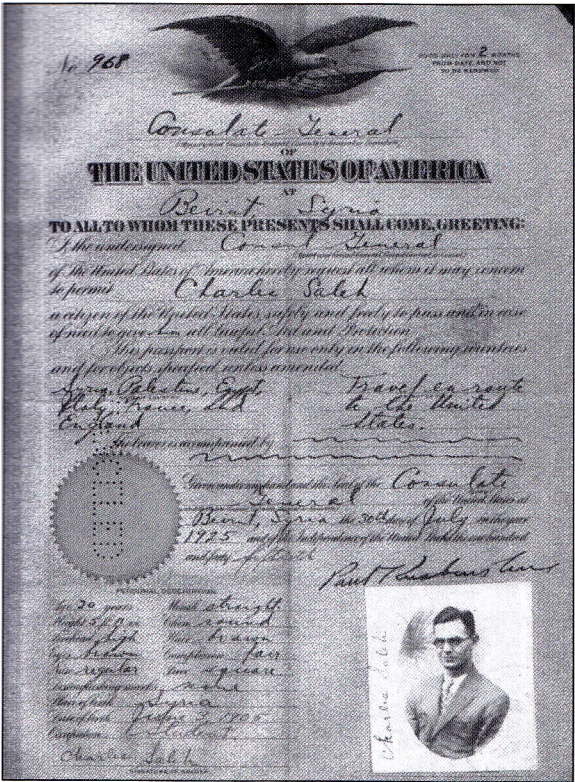 No 968
GOOD ONLY FOR 2 MONTHS
FROM DATE, AND NOT
TO BE RENEWED
Consulate General
OF
THE UNITED STATES OF AMERICA
AT
Beirut, Syria
TO ALL TO WHOM THESE PRESENTS SHALL COME, GREETING:
I the undersigned Consul General
of the United States of America hereby request all whom it may concern
to permit Charlie Saleh
a citizen of the United States safely and freely to pass and in case
of need to give him all lawful Aid and Protection
This passport is valid for use only in the following countries
and for objects specified unless amended
Syria, Palestine, Egypt, Travel en route
Italy, France, and to the United
England States.
The bearer is accompanied by
Given under my hand and the seal of the Consulate
General of the United States at
Beirut, Syria the 30th day of July in the year
1925 and of the Independence of the United States the one hundred
and fiftieth
PERSONAL DESCRIPTION
Age 20 years Mouth straight
Height 5 ft Chin round
Forehead high Hair brown
Eyes brown Complexion fair
Nose regular Face square
Distinguishing marks none
Place of birth Syria
Date of birth 1905
Occupation Student
Charlie Saleh
SIGNATURE OF BEARER
Charlie Saleh